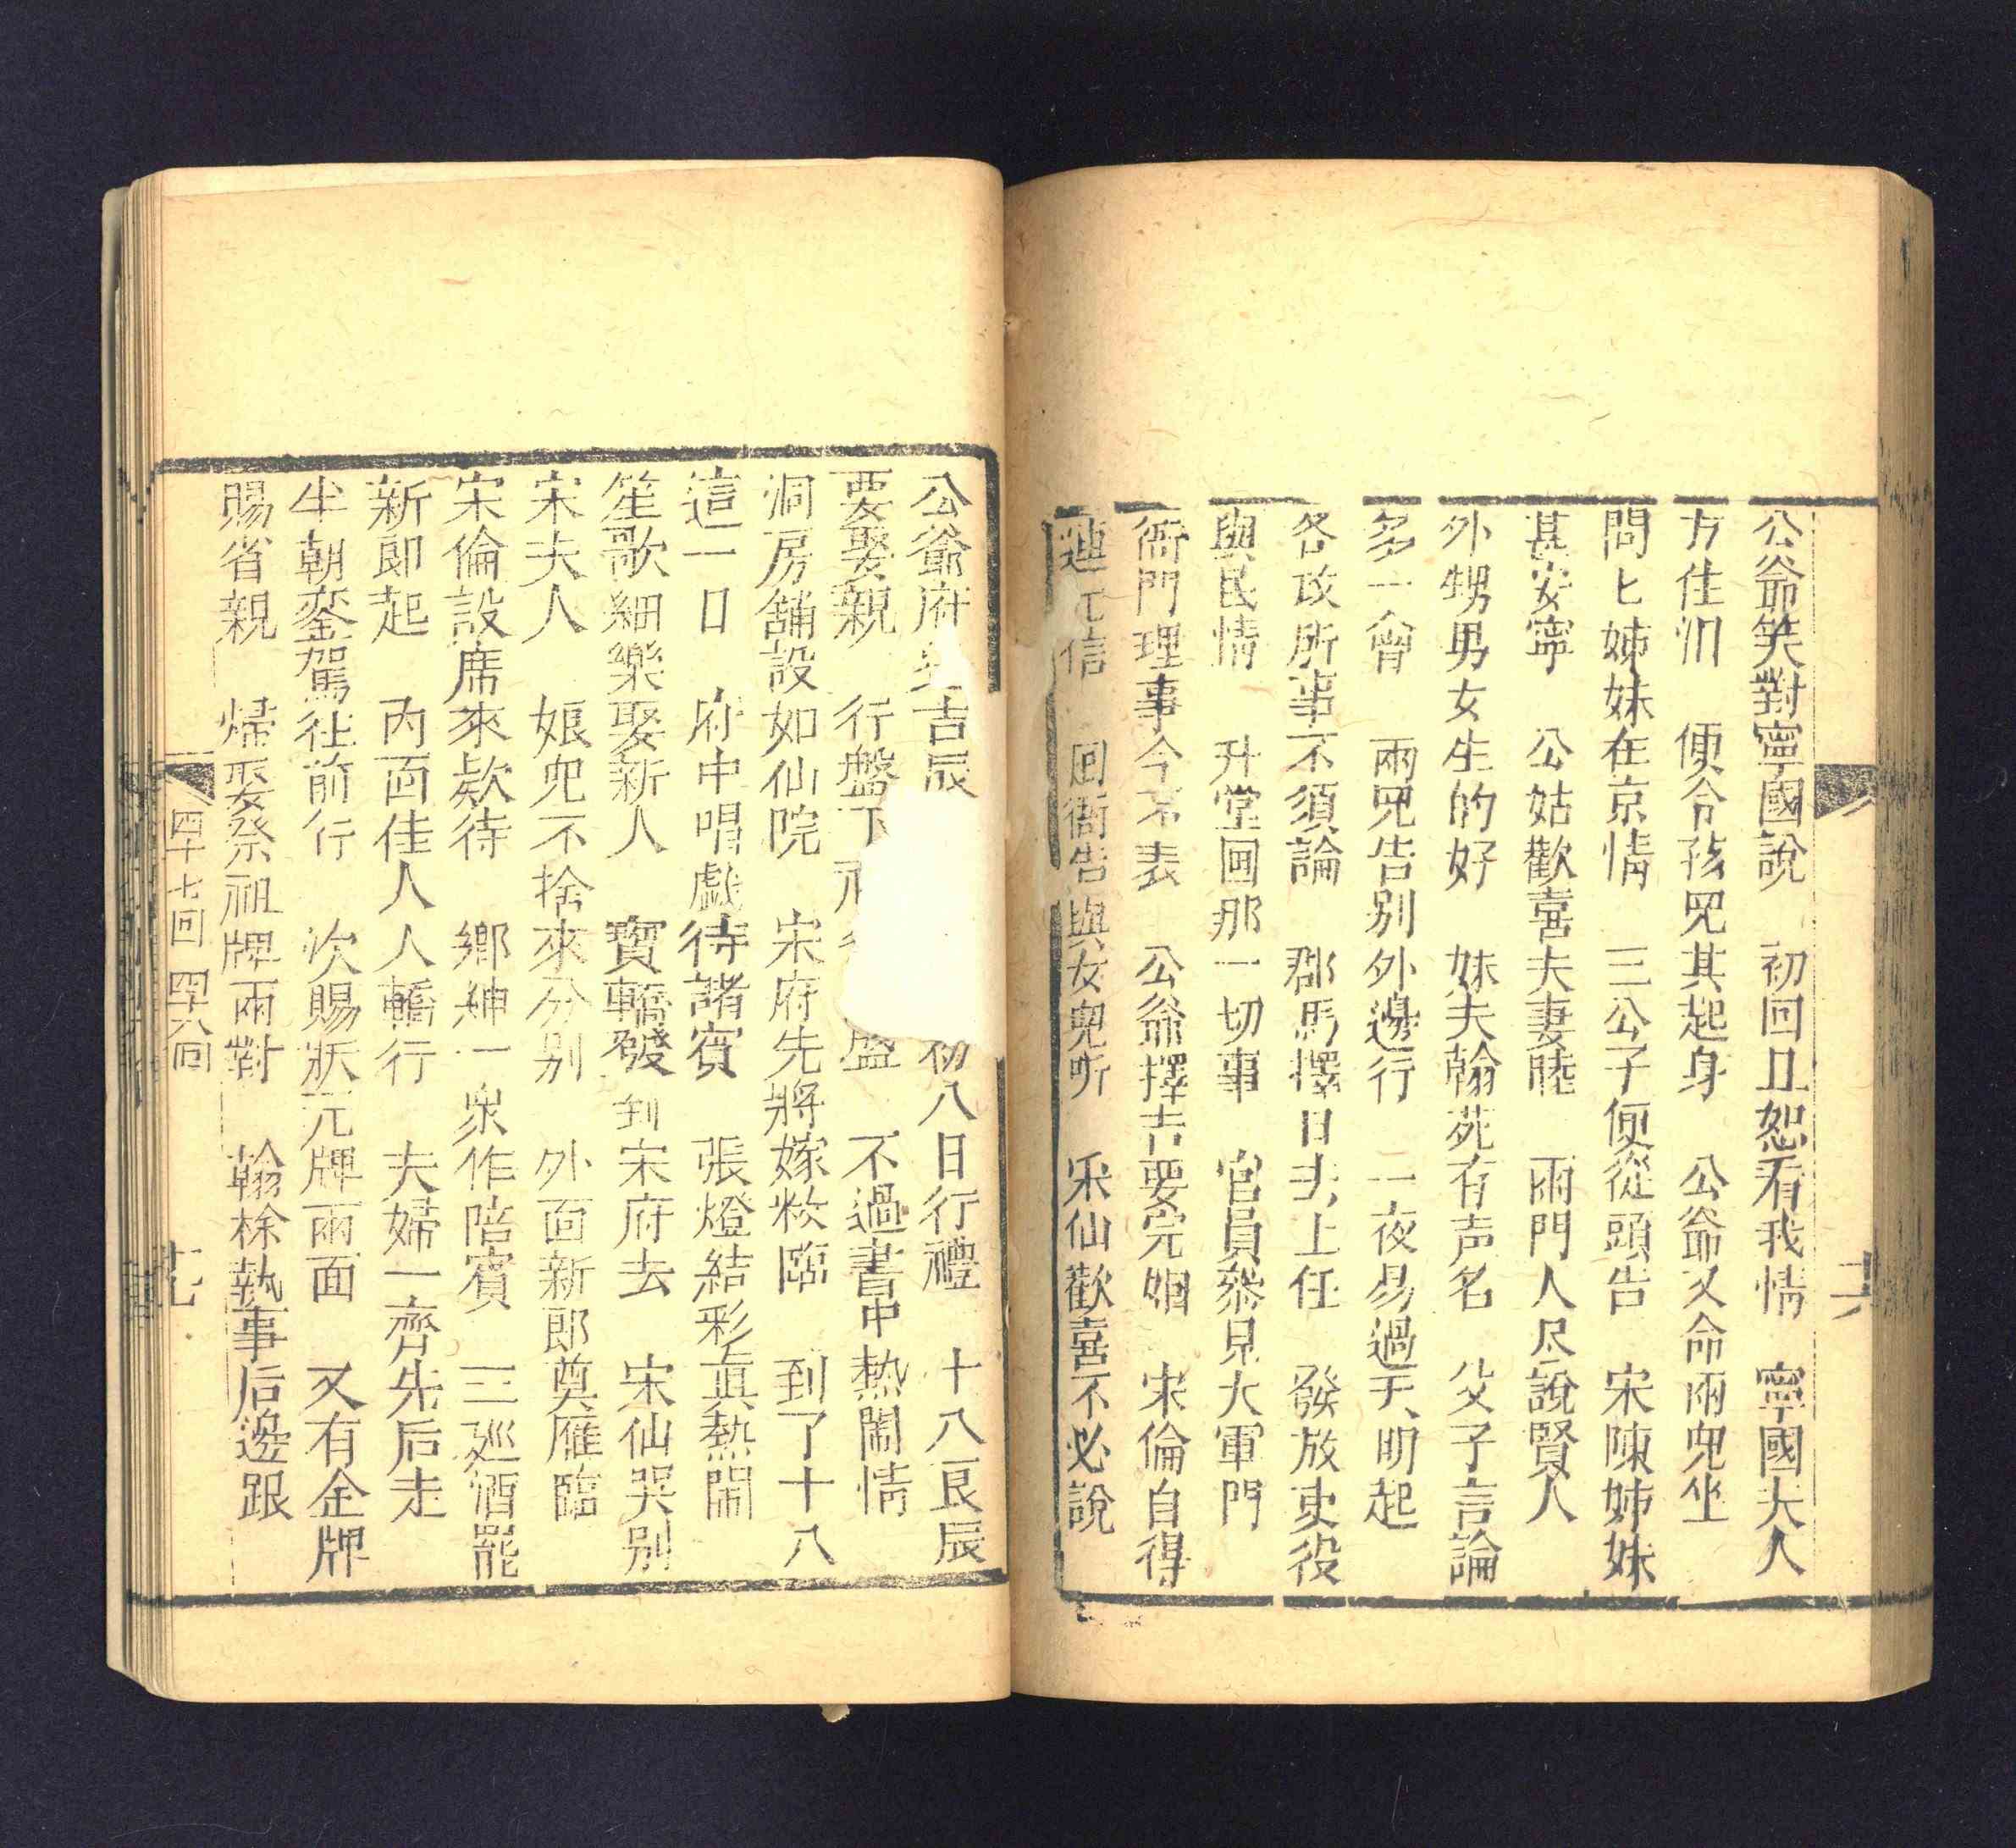 公爺笑對寧國說 初回且恕看我情 寧國夫人
方住泪 便令孩児其起身 公爺又命兩児坐
問匕姊妹在京情 三公子便從頭告 宋陳姊妹
甚安寧 公姑歡喜夫妻睦 兩門人尽說賢人
外甥男女生的好 妹夫翰苑有声名 父子言論
多一會 兩児告别外邊行 一夜易過天明起
各改所事不須論 郡馬擇日去上任 發放吏役
與民情 升堂回那一切事 官員叅見大軍門
衙門理事今不表 公爺擇吉要完姻 宋倫自得
連 信 回衙告與女児听 釆仙歡喜不必說
公爺府 吉辰 初八日行禮 十八良辰
要娶親 行盤下 盛 不過書中熱鬧情
洞房舖設如仙院 宋府先將嫁粧臨 到了十八
這一日 府中唱戯待諸賓 張燈結彩眞熱鬧
笙歌細樂娶新人 寳轎發到宋府去 宋仙哭别
宋夫人 娘児不捨來分别 外面新郎奠雁臨
宋倫設席來欵待 鄉紳一衆作陪賓 三廵酒罷
新郎起 內面佳人人轎行 夫婦一齊先后走
半朝鑾駕徃前行 次賜狀元牌兩面 又有金牌
賜省親 㷌娶祭祖牌兩對 翰林執事后邊跟
四十七回 四六回
十七